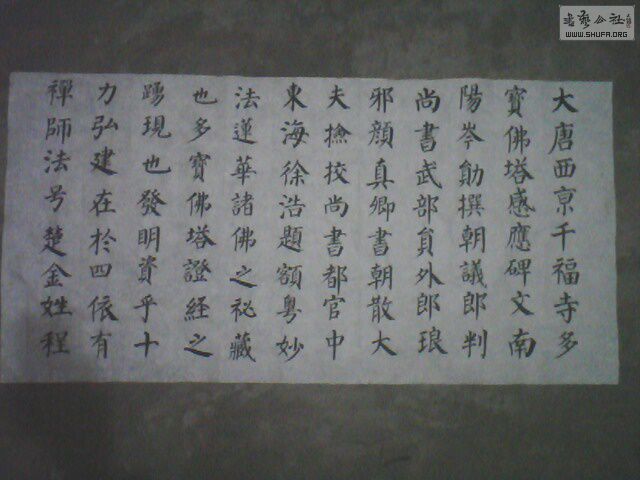 大唐西京千福寺多
寳佛塔感應碑文南
陽岑勛撰朝議郎判
尚書武部貟外郎琅
邪顔真卿書朝散大
夫撿挍尚書都官中
東海徐浩題額粤妙
法蓮華諸佛之祕藏
也多寳佛塔證経之
踴現也發明資乎十
力弘建在於四依有
禪師法号楚金姓程
書藝公社
WWW.SHUFA.ORG